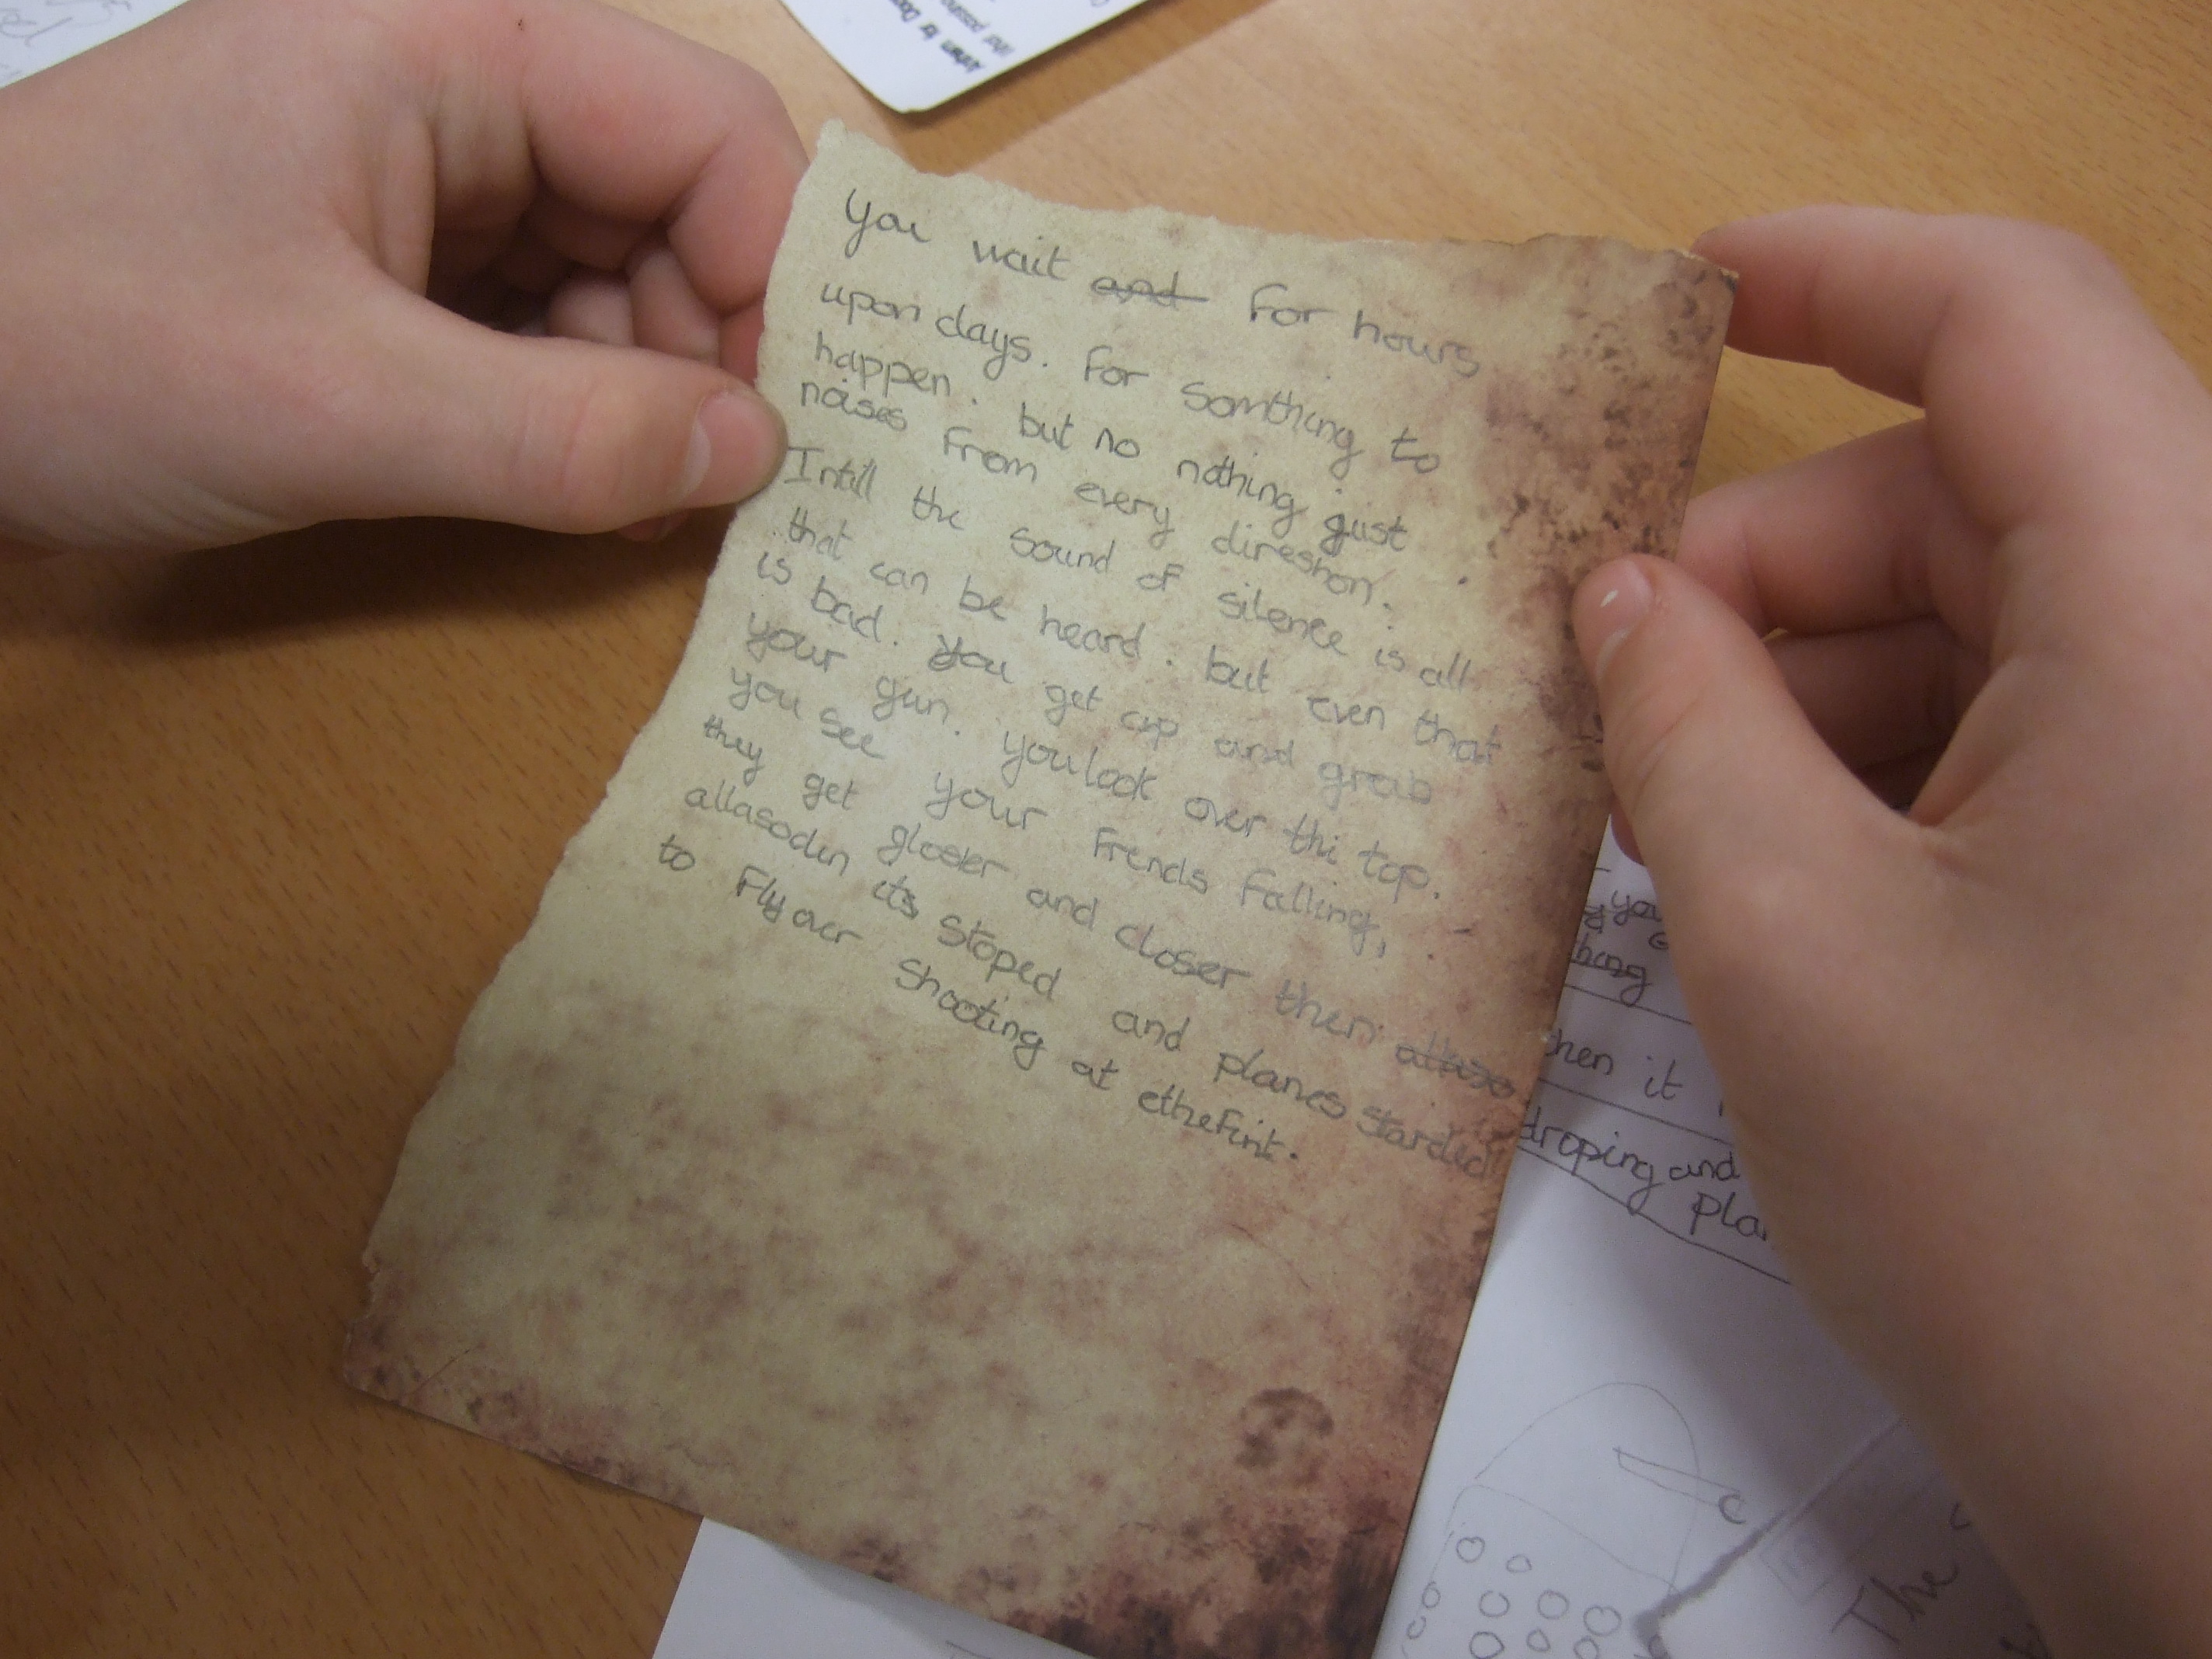 You wait and for hours
upon days. For somthing to
happen. but no nothing just
noises from every direshon.
Intill the sound of silence is all
that can be heard. but even that
is bad. You get up and grab
your gun. you look over thi top.
you see your frends falling,
they get gloser and closer then allaso
allasoden its stoped and planes starded
to fly over shooting at ethefint.
you
thing
then it
droping and
pla
The